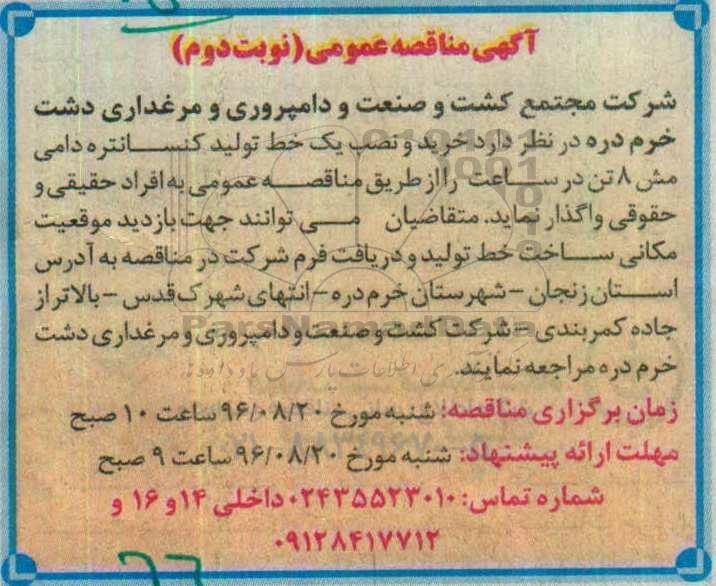 آگهی مناقصه عمومی (نوبت دوم)
شرکت مجتمع کشت و صنعت و دامپروری و مرغداری دشت
خرم دره در نظر دارد خرید و نصب یک خط تولید کنسانتره دامی
مش ۸ تن در ساعت را از طریق مناقصه عمومی به افراد حقیقی و
حقوقی واگذار نماید. متقاضیان می توانند جهت بازدید موقعیت
مکانی ساخت خط تولید و دریافت فرم شرکت در مناقصه به آدرس
استان زنجان - شهرستان خرم دره - انتهای شهرک قدس - بالاتر از
جاده کمربندی - شرکت کشت و صنعت و دامپروری و مرغداری دشت
خرم دره مراجعه نمایند.
زمان برگزاری مناقصه: شنبه مورخ ۹۶/۰۸/۲۰ ساعت ۱۰ صبح
مهلت ارائه پیشنهاد: شنبه مورخ ۹۶/۰۸/۲۰ ساعت ۹ صبح
شماره تماس: ۰۲۴۳۵۵۲۳۰۱۰ داخلی ۱۴ و ۱۶ و
۰۹۱۲۸۴۱۷۷۱۲
ParsNamadData